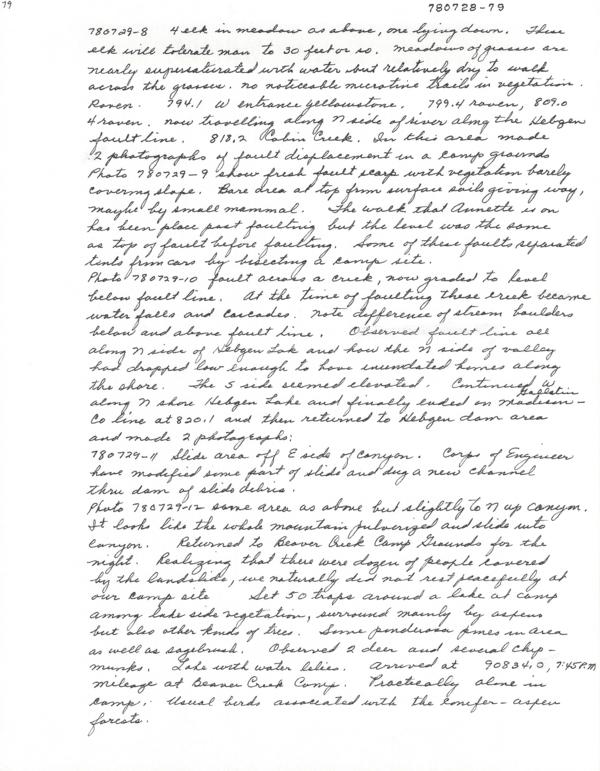 79
780728-79
780729-8 4 elk in meadow as above, one lying down. These
elk will tolerate man to 30 feet or so. meadows of grasses are
nearly supersaturated with water but relatively dry to walk
across the grasses. no noticeable microtine trails in vegetation.
Raven. 794.1 W entrance yellowstone. 799.4 raven, 809.0
4 raven. now travelling along N side of river along the Hebgen
fault line. 818.2 Cabin Creek. In this area made
2 photographs of fault displacement in a camp grounds
Photo 780729-9 show fresh fault scarp with vegetation barely
covering slope. Bare area at top from surface soils giving way,
maybe by small mammal. The walk that Annette is on
has been place past faulting but the level was the same
as top of fault before faulting. Some of these faults separated
tents from cars by bisecting a camp site.
Photo 780729-10 fault across a creek, now graded to level
below fault line. At the time of faulting these creek became
water falls and cascades. note difference of stream boulders
below and above fault line. Observed fault line all
along N side of Hebgen Lak and how the N side of valley
had dropped low enough to have inundated homes along
the shore. The S side seemed elevated. Continued W
along N shore Hebgen Lake and finally ended on Madison- Gallatin
Co line at 820.1 and then returned to Hebgen dam area
and made 2 photographs:
780729-11 Slide area off E side of canyon. Corps of Engineer
have modified some part of slide and dug a new channel
thru dam of slide debris.
Photo 780729-12 same area as above but slightly to N up canyon.
It looks like the whole mountain pulverized and slide into
canyon. Returned to Beaver Creek Camp Grounds for the
night. Realizing that there were dozen of people covered
by the landslide, we naturally did not rest peacefully at
our camp site Set 50 traps around a lake at camp
among lake side vegetation, surround mainly by aspens
but also other kinds of trees. Some ponderosa pines in area
as well as sagebrush. Observed 2 deer and several chip-
munks. Lake with water lilies. arrived at 90834.0, 7:45 P.M
mileage at Beaver Creek Camp. Practically alone in
camp. Usual birds associated with the conifer-aspen
forests.